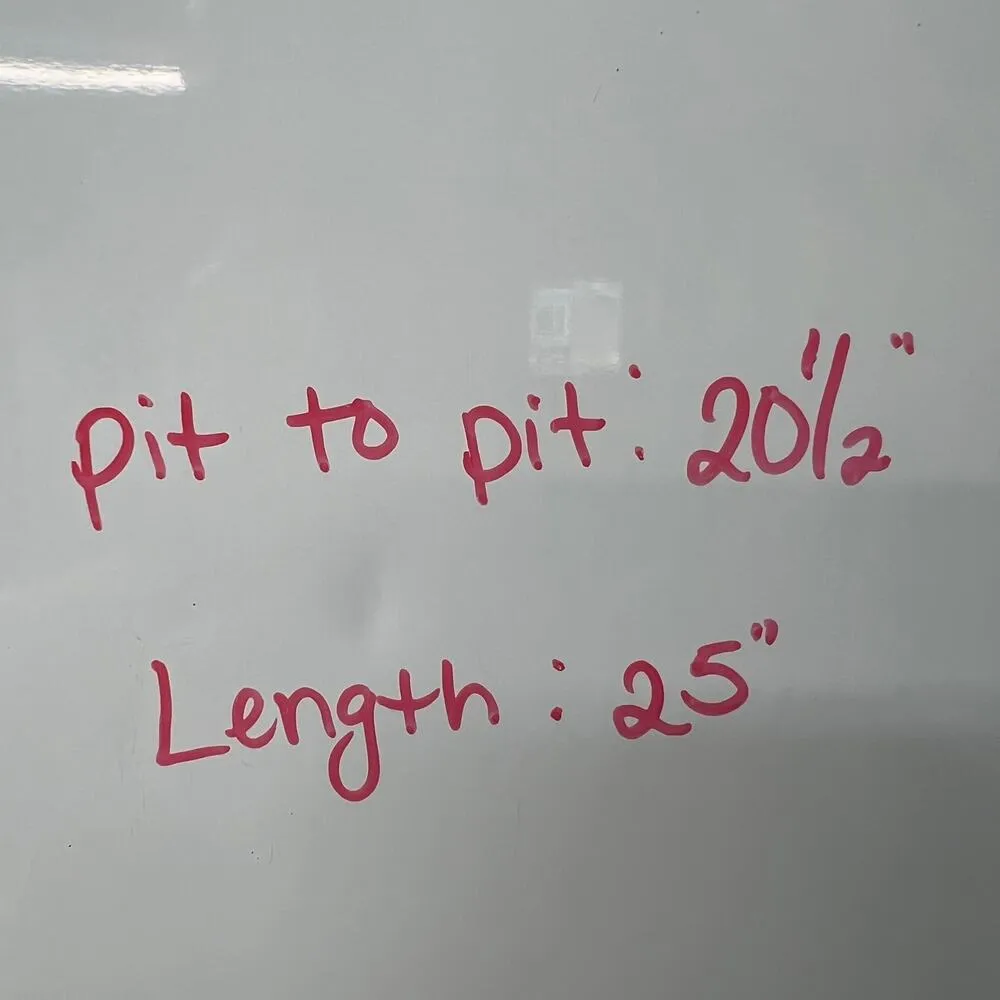 pit to pit: 20 1/2"
Length: 25"